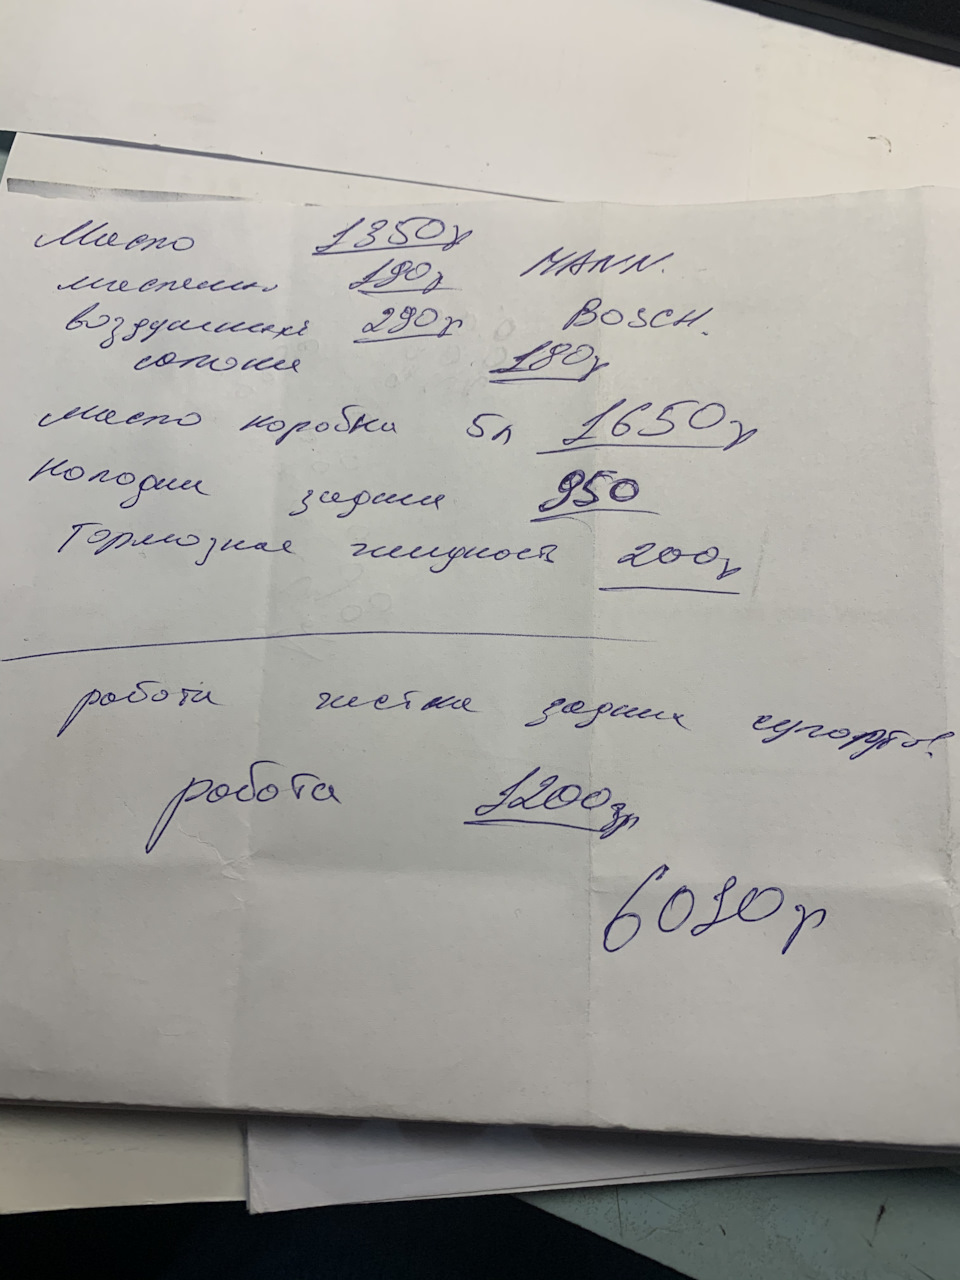 Масло 1350г
маслены 190г MANN.
воздушный 290г BOSCH.
салона 180г
масло коробка 5л 1650г
Колодки задние 950
Тормозная жидкость 200г
робота чистка задних супортов
робота 1200гр
6010г